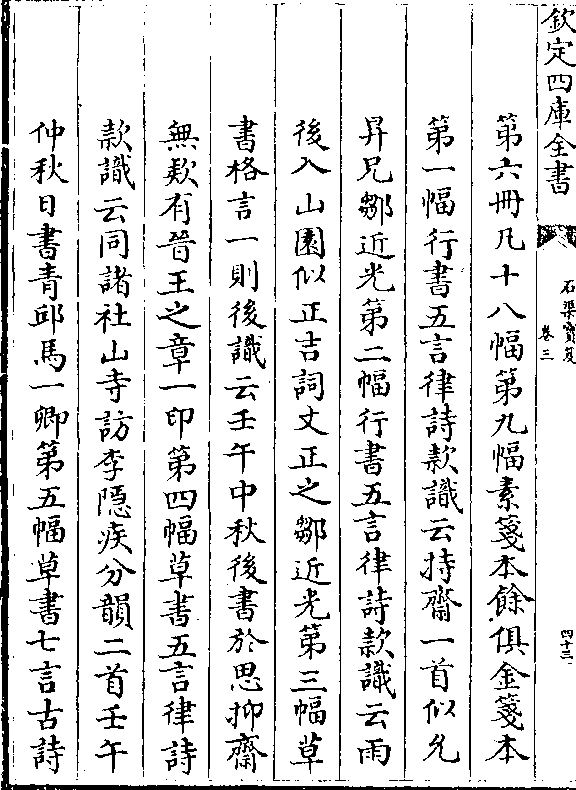 欽定四庫全書
石渠寶笈
卷三
四十三
第六冊凡十八幅第九幅素箋本餘俱金箋本
第一幅行書五言律詩款識云持齋一首似允
昇兄鄒近光第二幅行書五言律詩款識云雨
後入山園似正吉詞丈正之鄒近光第三幅草
書格言一則後識云壬午中秋後書於思抑齋
無款有晉王之章一印第四幅草書五言律詩
款識云同諸社山寺訪李隱疾分韻二首壬午
仲秋日書青邱馬一卿第五幅草書七言古詩